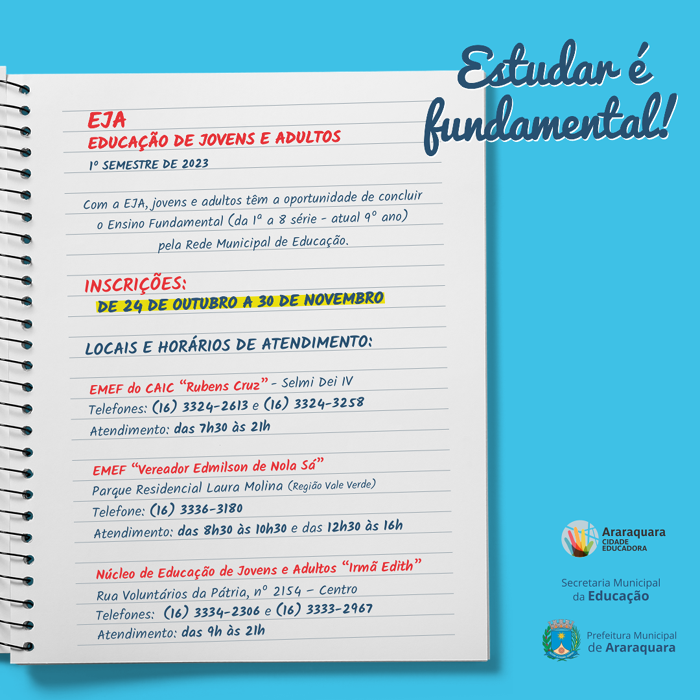 Estudar é
fundamental!
EJA
EDUCAÇÃO DE JOVENS E ADULTOS
1º SEMESTRE DE 2023
Com a EJA, jovens e adultos têm a oportunidade de concluir
o Ensino Fundamental (da 1ª a 8 série - atual 9º ano)
pela Rede Municipal de Educação.
INSCRIÇÕES:
DE 24 DE OUTUBRO A 30 DE NOVEMBRO
LOCAIS E HORÁRIOS DE ATENDIMENTO:
EMEF do CAIC "Rubens Cruz" - Selmi Dei IV
Telefones: (16) 3324-2613 e (16) 3324-3258
Atendimento: das 7h30 às 21h
EMEF "Vereador Edmilson de Nola Sá"
Parque Residencial Laura Molina (Região Vale Verde)
Telefone: (16) 3336-3180
Atendimento: das 8h30 às 10h30 e das 12h30 às 16h
Núcleo de Educação de Jovens e Adultos "Irmã Edith"
Rua Voluntários da Pátria, nº 2154 – Centro
Telefones: (16) 3334-2306 e (16) 3333-2967
Atendimento: das 9h às 21h
Araraquara
CIDADE
EDUCADORA
Secretaria Municipal
da Educação
Prefeitura Municipal
de Araraquara